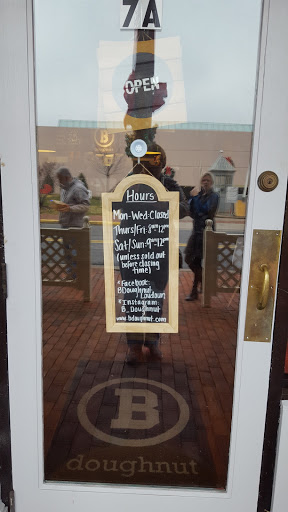 7A
OPEN
B
Hours
Mon-Wed-Closed
Thurs/Fri: 8am-12pm
Sat/Sun: 9am-12pm
(unless sold out
before closing
time)
*Facebook:
BDoughnut
Loudoun
*Instagram:
B_Doughnut
www.bdoughnut.com
B
doughnut